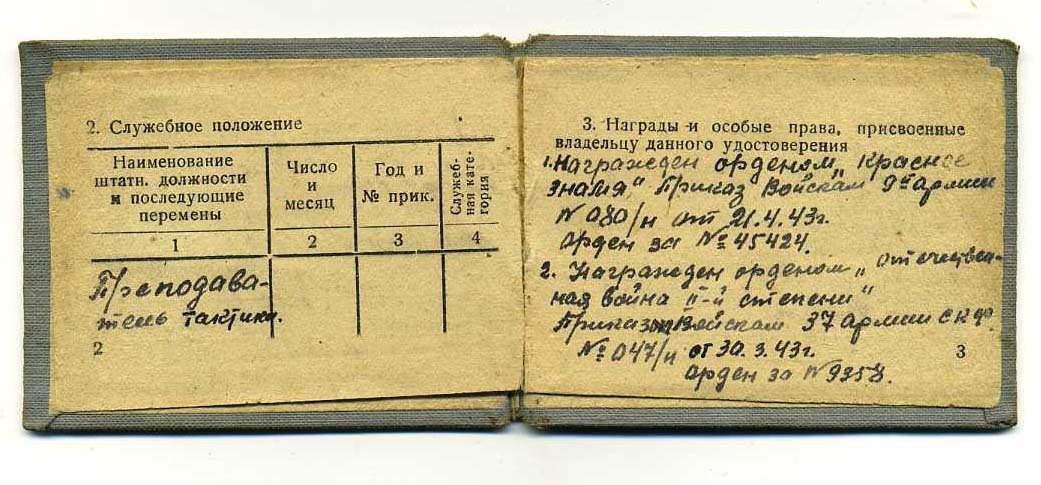 2. Служебное положение
Наименование
штатн. должности
и последующие
перемены
Число
и
месяц
Год и
№ прик.
Служеб-
ная кате-
гория
1
2
3
4
Преподава-
тель тактики.
2
3. Награды и особые права, присвоенные
владельцу данного удостоверения
1. Награжден орденом „Красное
знамя" Приказ Войскам 9й армии
N 080/н от 21.4.43г.
орден за № 45424.
2. Награжден орденом „отечествен-
ная война II-й степени"
Приказом Войскам 37 армии СКФ.
№ 047/н от 30.3.43г.
орден за N 9358.
3